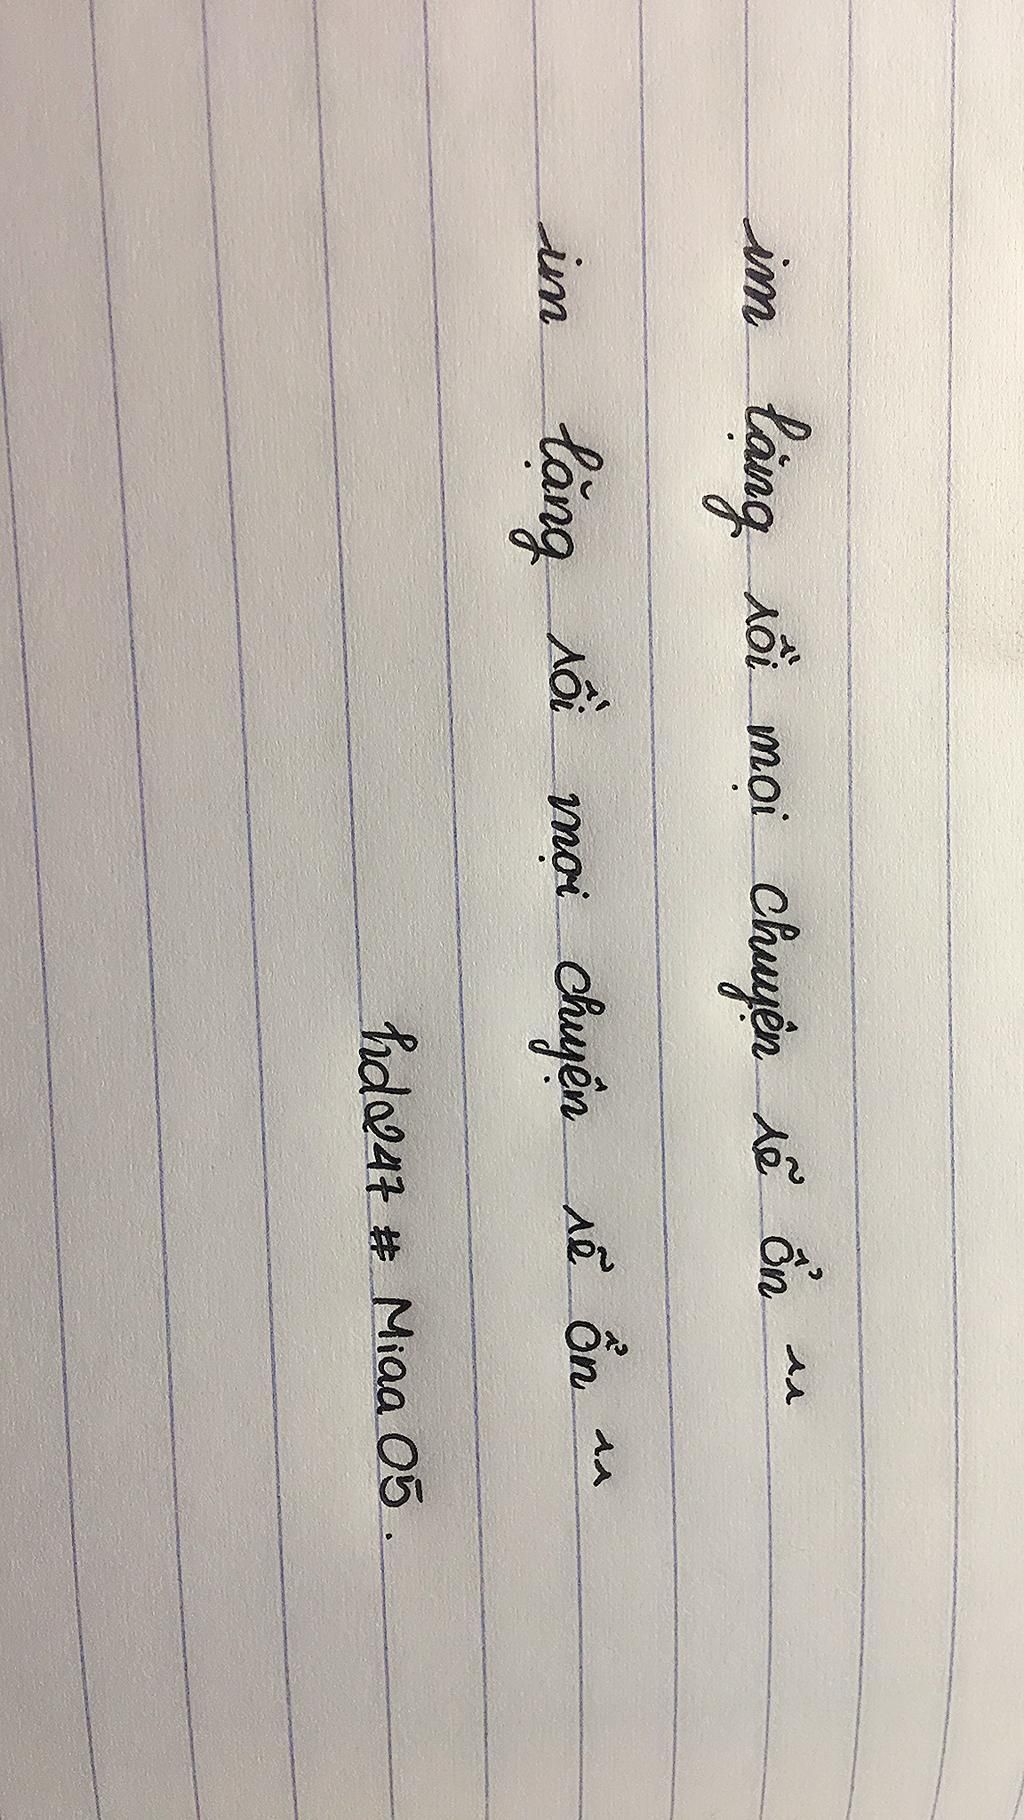 im lặng rồi mọi chuyện sẽ ổn ^^
im lặng rồi mọi chuyện sẽ ổn ^^
hda247 # Miaa 05.